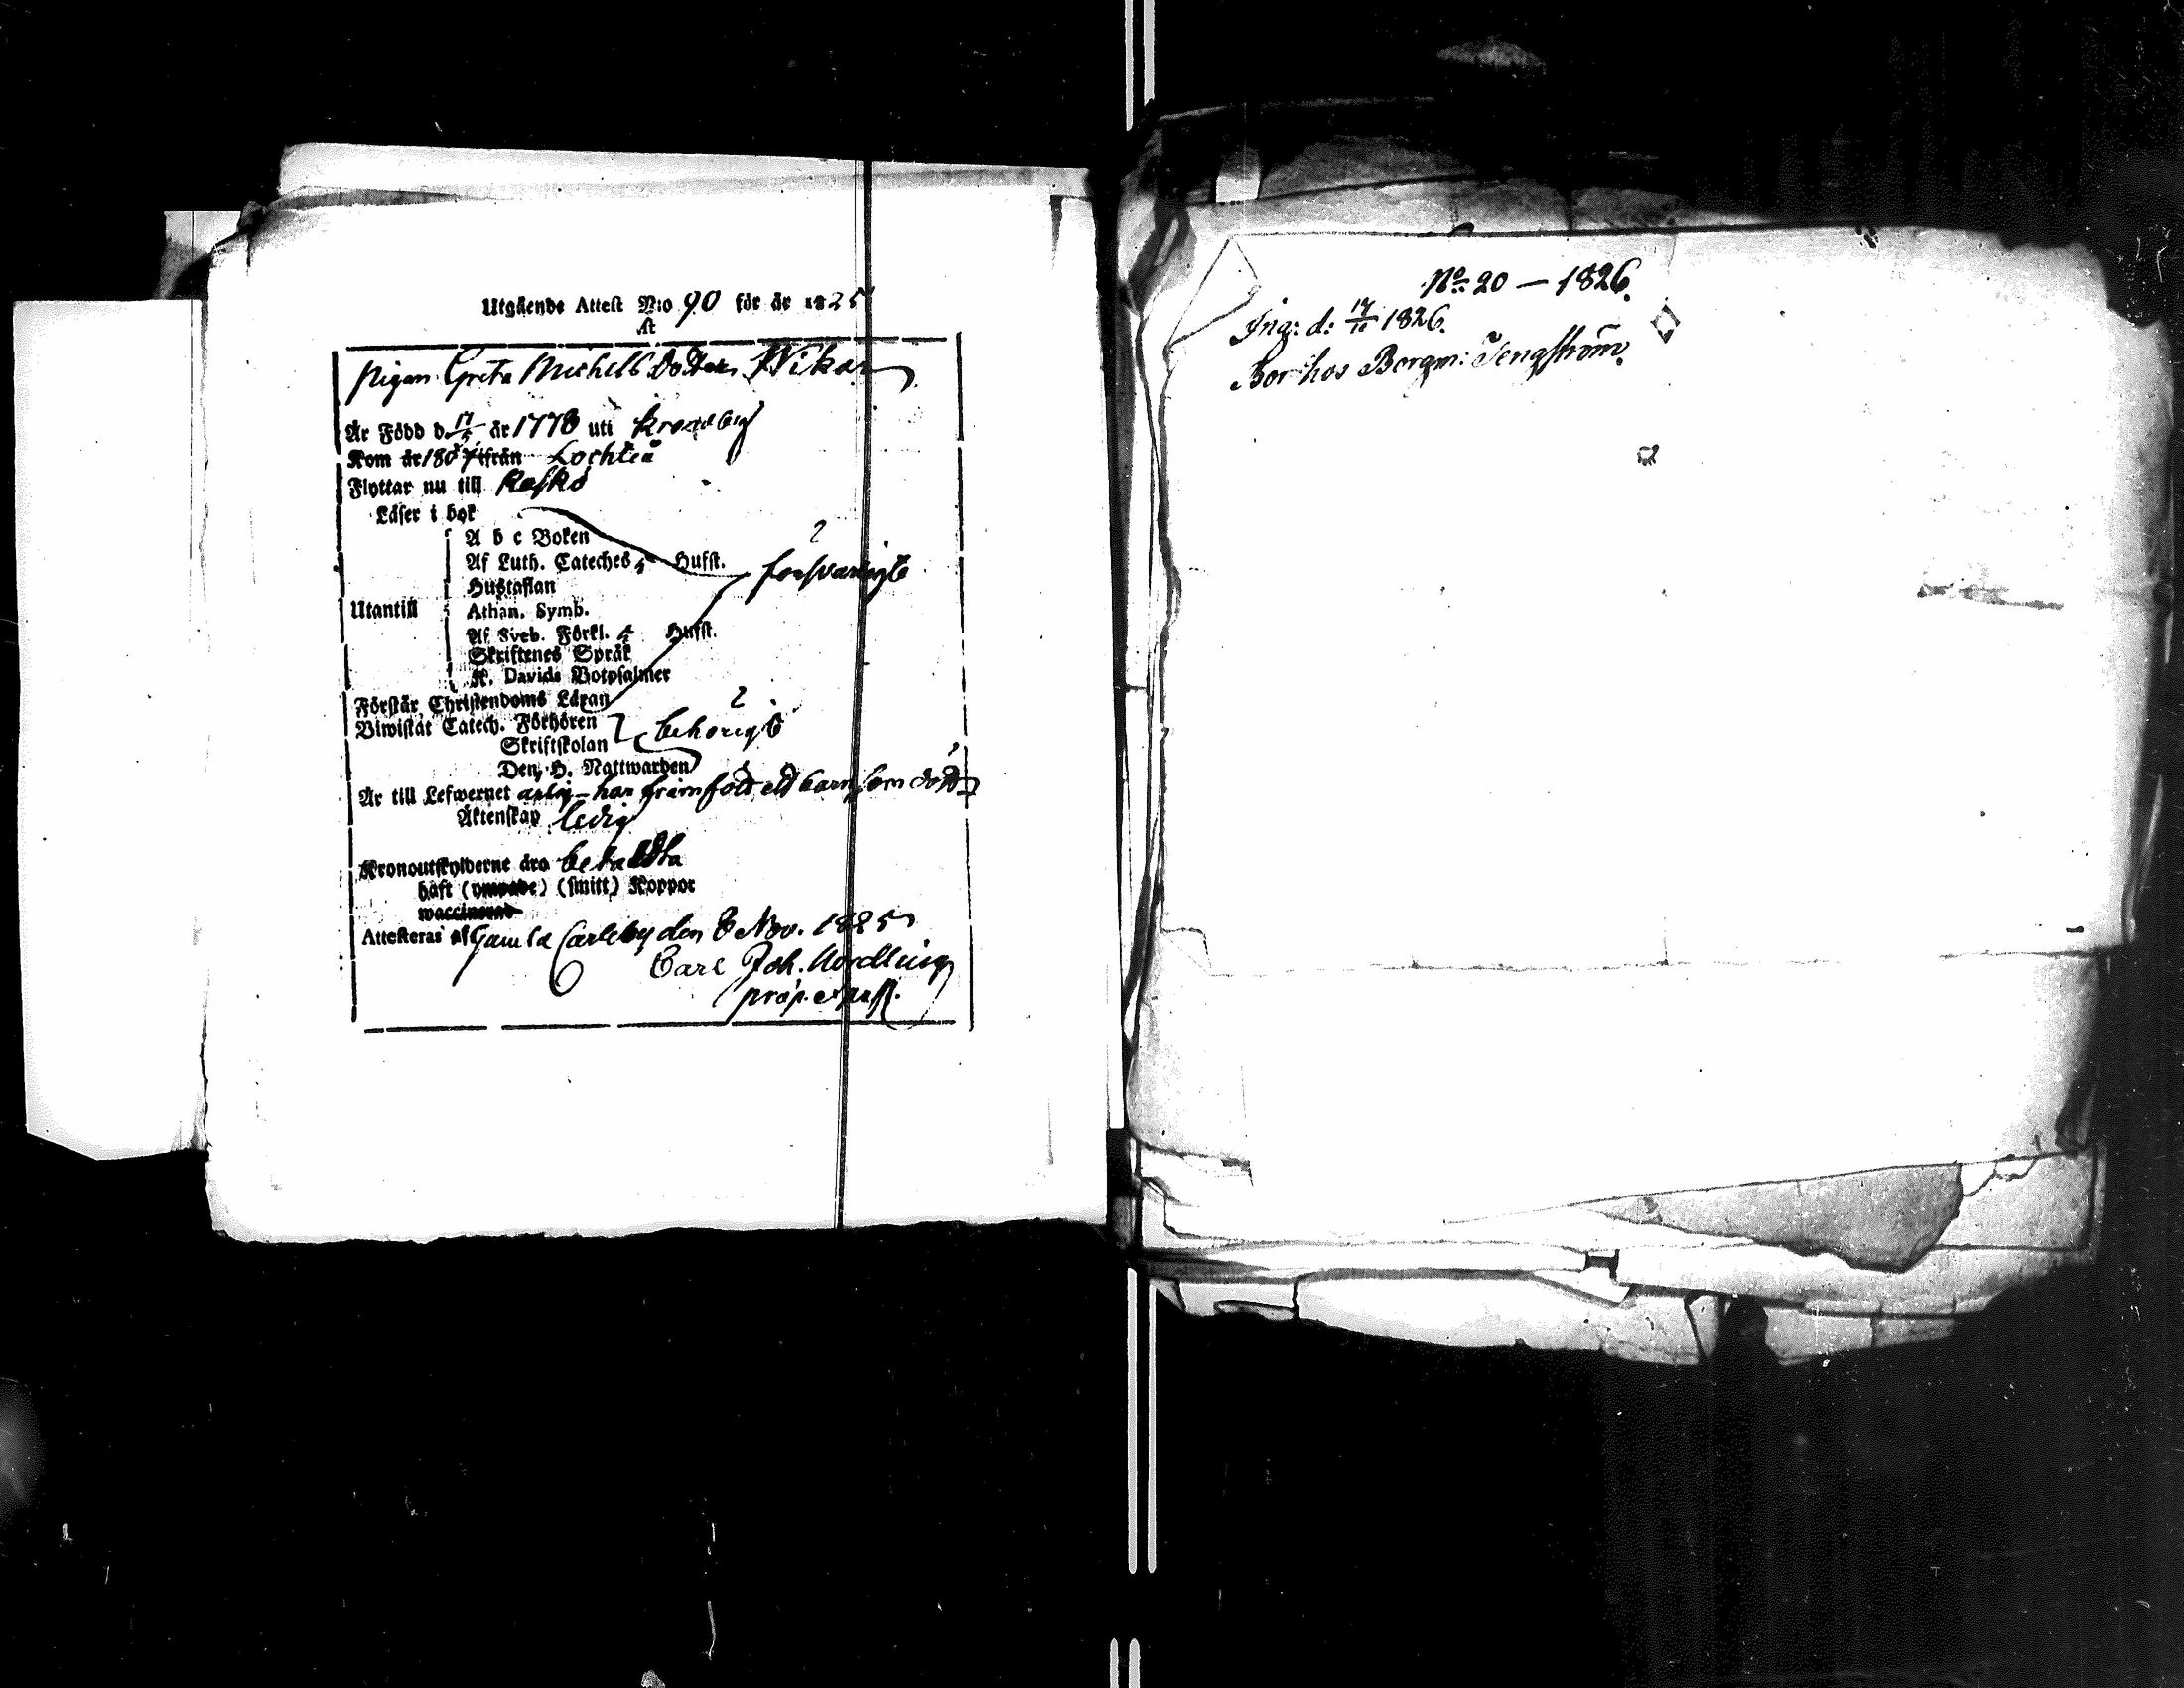 Utgående Attest N:o 90 för år 1825
Pigan Greta Michels Dotter Wikar
Är Född d. 17/5 år 1778 uti Kronoby
Kom år 1807 ifrån Lochteå
Flyttar nu till Kaskö
Läser i bok
A b c Boken
Af Luth. Cateches 5 Hufst. försvarligt
Hustaflan
Utantill Athan. Symb.
Af Sveb. Förkl. 5 Hufst.
Skriftenes Språk
K. Davids Botpsalmer
Förstår Christendoms Läran
Biwistat Catech. Förhören
Skriftskolan behörigt
Den H. Nattwarden
Är till Lefwernet ärlig - har framfödt ett barn som dödt
Äktenskap ledig
Kronoutskylderne äro betaldta
haft (ympade) (smitt) Koppor
waccinerad
Attesteras af Gamla Carleby den 8 Nov. 1825
Carl Joh. Nordling
N:o 20 — 1826.
Ing: d: 1826.
Bor hos Borgm: Tengström.